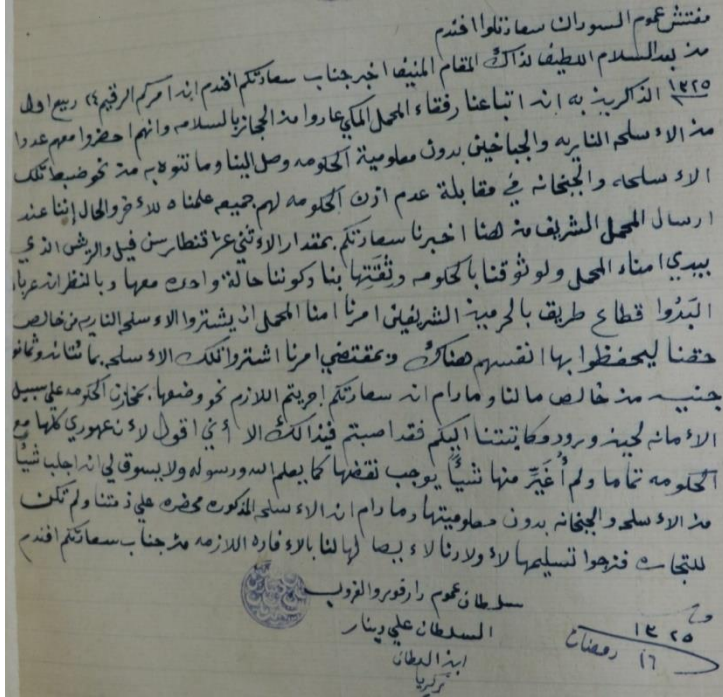 مفتش عموم السودان سعادتلوا افندم
من بعد السلام اللطيف لذاك المقام المنيف اخبر جناب سعادتكم افندم ان امركم الرقيم ٢٤ ربيع اول
١٣٢٥ الذاكرين به ان اتباعنا رفقاء المحمل المكي عادوا من الحجاز بالسلامه وانهم احضروا معهم عددا
من الاسلحه الناريه والجباخين بدون معلومية الحكومه وصل الينا وما تنوه به من نحو ضبط تلك
الاسلحه والجبخانه في مقابلة عدم اذن الحكومه لهم جميعه علمناه للآخر والحال إننا عند
ارسال المحمل الشريف من هنا اخبرنا سعادتكم بمقدار الاثني عشر قنطار سن فيل والريش الذي
بيدي امناء المحمل ولوثوقنا بالحكومه وثقتها بنا وكوننا حالة واحده معها وبالنظر ان عربان
البدوا قطاع طريق بالحرمين الشريفين امرنا امنا المحمل ان يشتروا الاسلحه الناريه من خالص
حقنا ليحفظوا بها انفسهم هناك وبمقتضي امرنا اشتروا تلك الاسلحه بمائتان وثمانو
جنيه من خالص مالنا وما دام ان سعادتكم اجريتم اللازم نحو وضعها بمخازن الحكومه علي سبيل
الأمانه لحين ورود مكاتبتنا اليكم فقد اصبتم في ذالك الا أني اقول لأن عهوري كلها مع
الحكومه تماما ولم أُغَيِّر منها شيأً يوجب نقضها كما يعلم الله ورسوله ولا يسوق لي ان اجلب شيأ
من الاسلحه والجبخانه بدون معلوميتها وما دام ان الاسلحه المذكوره محضره علي ذمتنا ولم تكن
للتجاره فنرجوا تسليمها لأولادنا لايصالها لنا بالافاده اللازمه من جناب سعادتكم افندم
سلطان عموم دارفور والغروب
السلطان علي دينار
ابن السلطان
زكريا
١٣٢٥
١٦ رمضان